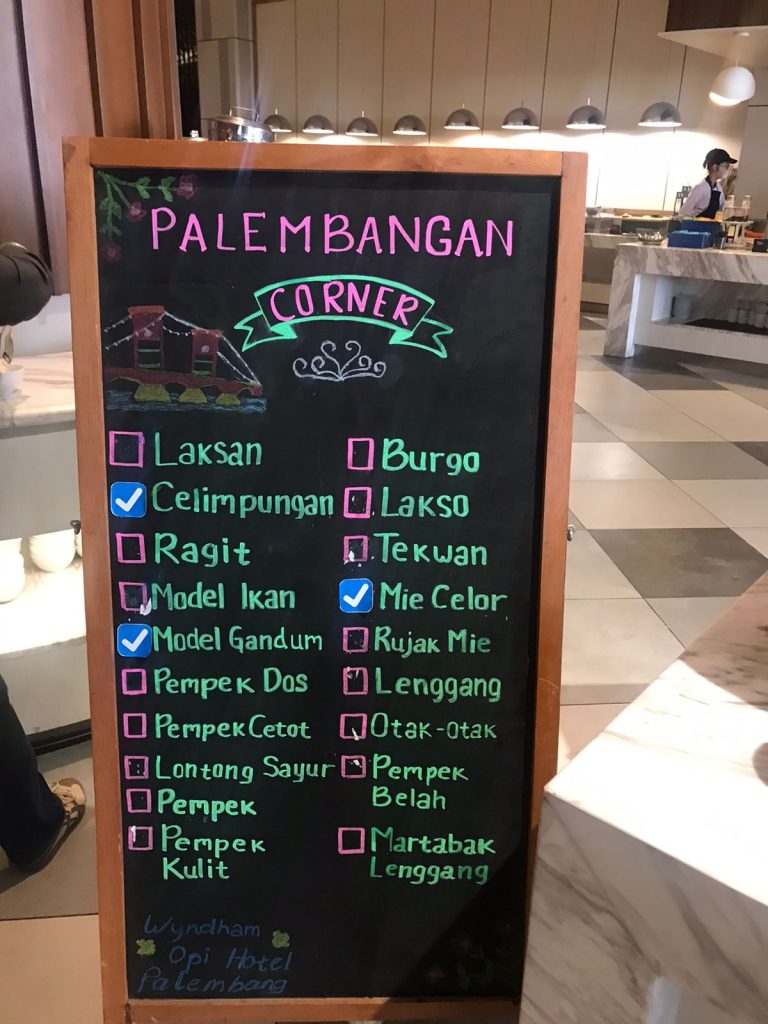 PALEMBANGAN
CORNER
Laksan
Celimpungan
Ragit
Model Ikan
Model Gandum
Pempek Dos
Pempek Cetot
Lontong Sayur
Pempek
Pempek
Kulit
Burgo
Lakso
Tekwan
Mie Celor
Rujak Mie
Lenggang
Otak-otak
Pempek
Belah
Martabak
Lenggang
Wyndham
Opi Hotel
Palembang